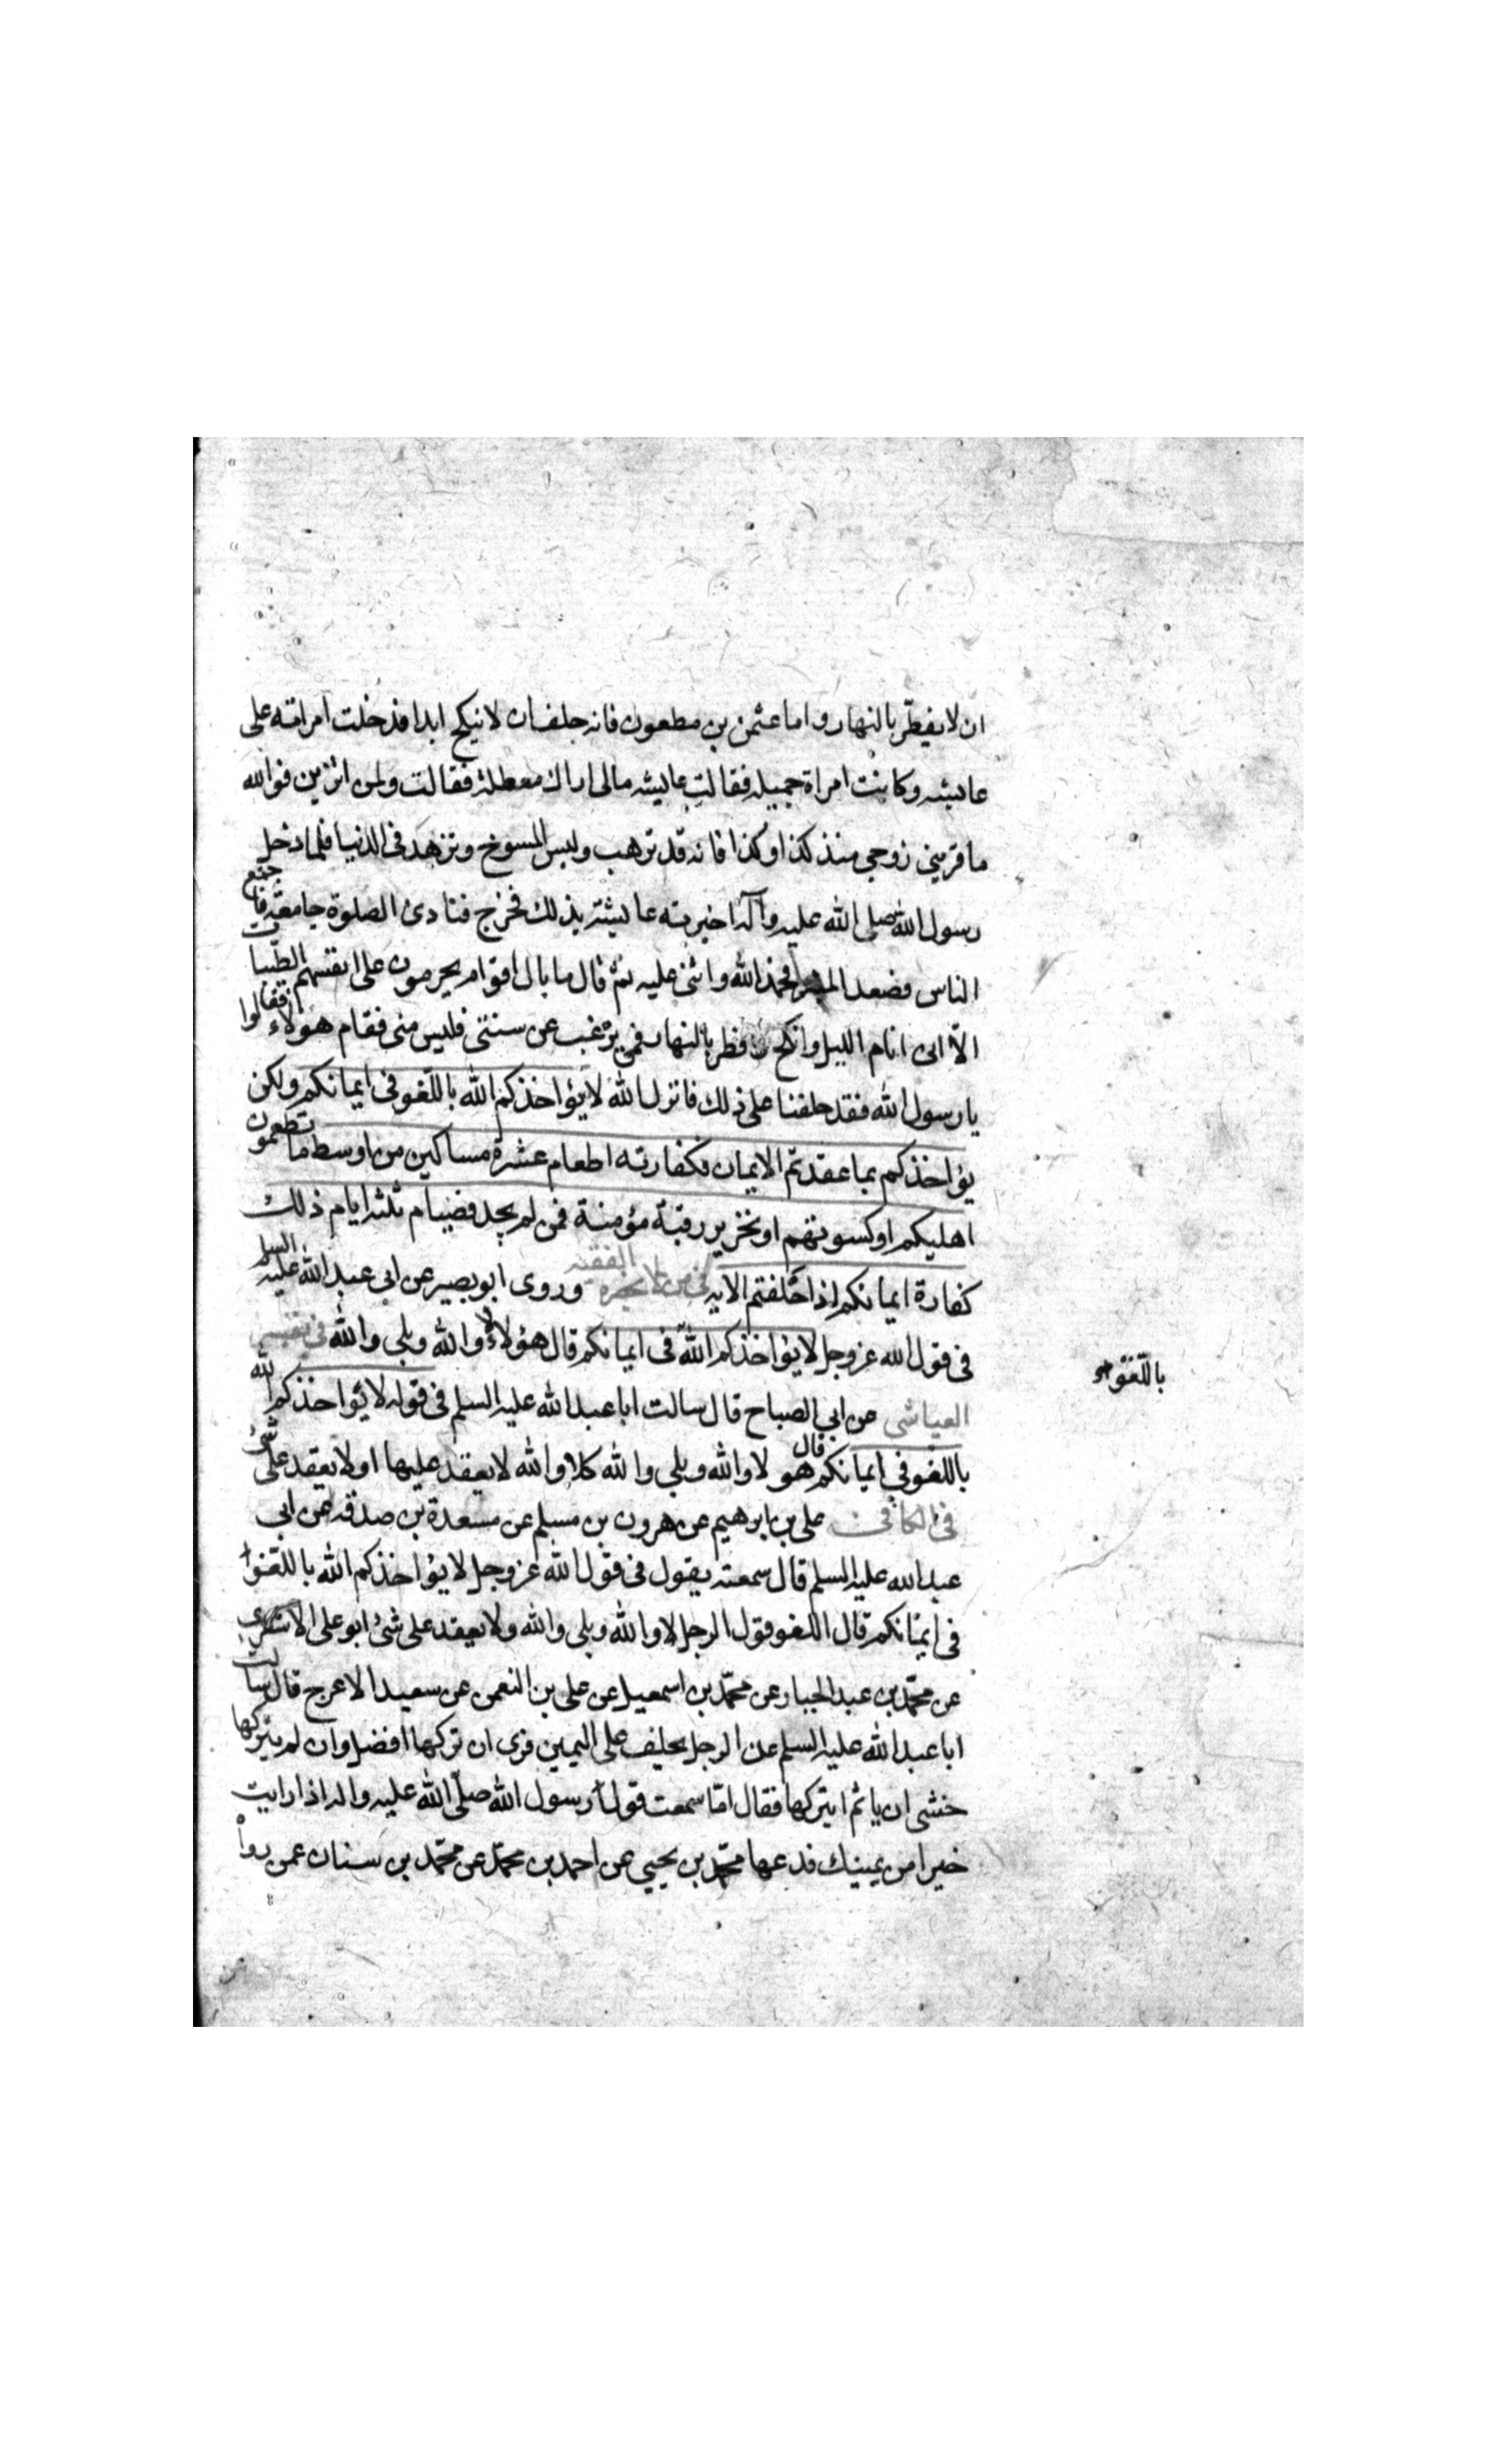 ان لا يفطر بالنهار واما عثمن بن مطعون فانه حلف ان لا ينكح ابدا فدخلت امراته على
عايشه وكانت امراة جميله فقالت عايشه مالى اراك معطلة فقالت ولمن اتزين فوالله
ما قربنى زوجى منذ كذا وكذا فانه قد ترهب ولبس المسوخ وتزهد فى الدنيا فلما دخل
رسول الله صلى الله عليه وآله اخبرته عايشة بذلك فخرج فنادى الصلوة جامعة فاجتمع
الناس فصعد المنبر فحمد الله واثنى عليه ثم قال ما بال اقوام يحرمون على انفسهم الطيبات
الا انى انام الليل وانكح وافطر بالنهار فمن يرغب عن سنتى فليس منى فقام هولاء فقالوا
يا رسول الله فقد حلفنا على ذلك فانزل الله لا يؤاخذكم الله باللغو فى ايمانكم ولكن
يؤاخذكم بما عقدتم الايمان فكفارته اطعام عشرة مساكين من اوسط ما تطعمون
اهليكم او كسوتهم او تحرير رقبة مؤمنة فمن لم يجد فصيام ثلثه ايام ذلك
كفارة ايمانكم اذا حلفتم الايه فى من لا يحضره الفقيه وروى ابو بصير عن ابى عبد الله عليه السلم
فى قول الله عز وجل لا يؤاخذكم الله فى ايمانكم قال هو لا والله وبلى والله فى تفسير
باللغو
العياشى عن ابى الصباح قال سالت ابا عبد الله عليه السلم فى قوله لا يؤاخذكم الله
باللغو فى ايمانكم قال هو لا والله وبلى والله كلا والله لا يعقد عليها او لا يعقد على شئ
فى الكافى على بن ابرهيم عن هرون بن مسلم عن مسعدة بن صدقه عن ابى
عبد الله عليه السلم قال سمعته يقول فى قول الله عز وجل لا يؤاخذكم الله باللغو
فى ايمانكم قال اللغو قول الرجل لا والله وبلى والله ولا يعقد على شئ ابو على الاشعرى
عن محمد بن عبد الجبار عن محمد بن اسمعيل عن على بن النعمن عن سعيد الاعرج قال سالت
ابا عبد الله عليه السلم عن الرجل يحلف على اليمين فرى ان تركها افضل وان لم يتركها
خشى ان ياثم ايتركها فقال اما سمعت قول رسول الله صلى الله عليه واله اذا رايت
خيرا من يمينك فدعها محمد بن يحيى عن احمد بن محمد عن محمد بن سنان عمن رواه